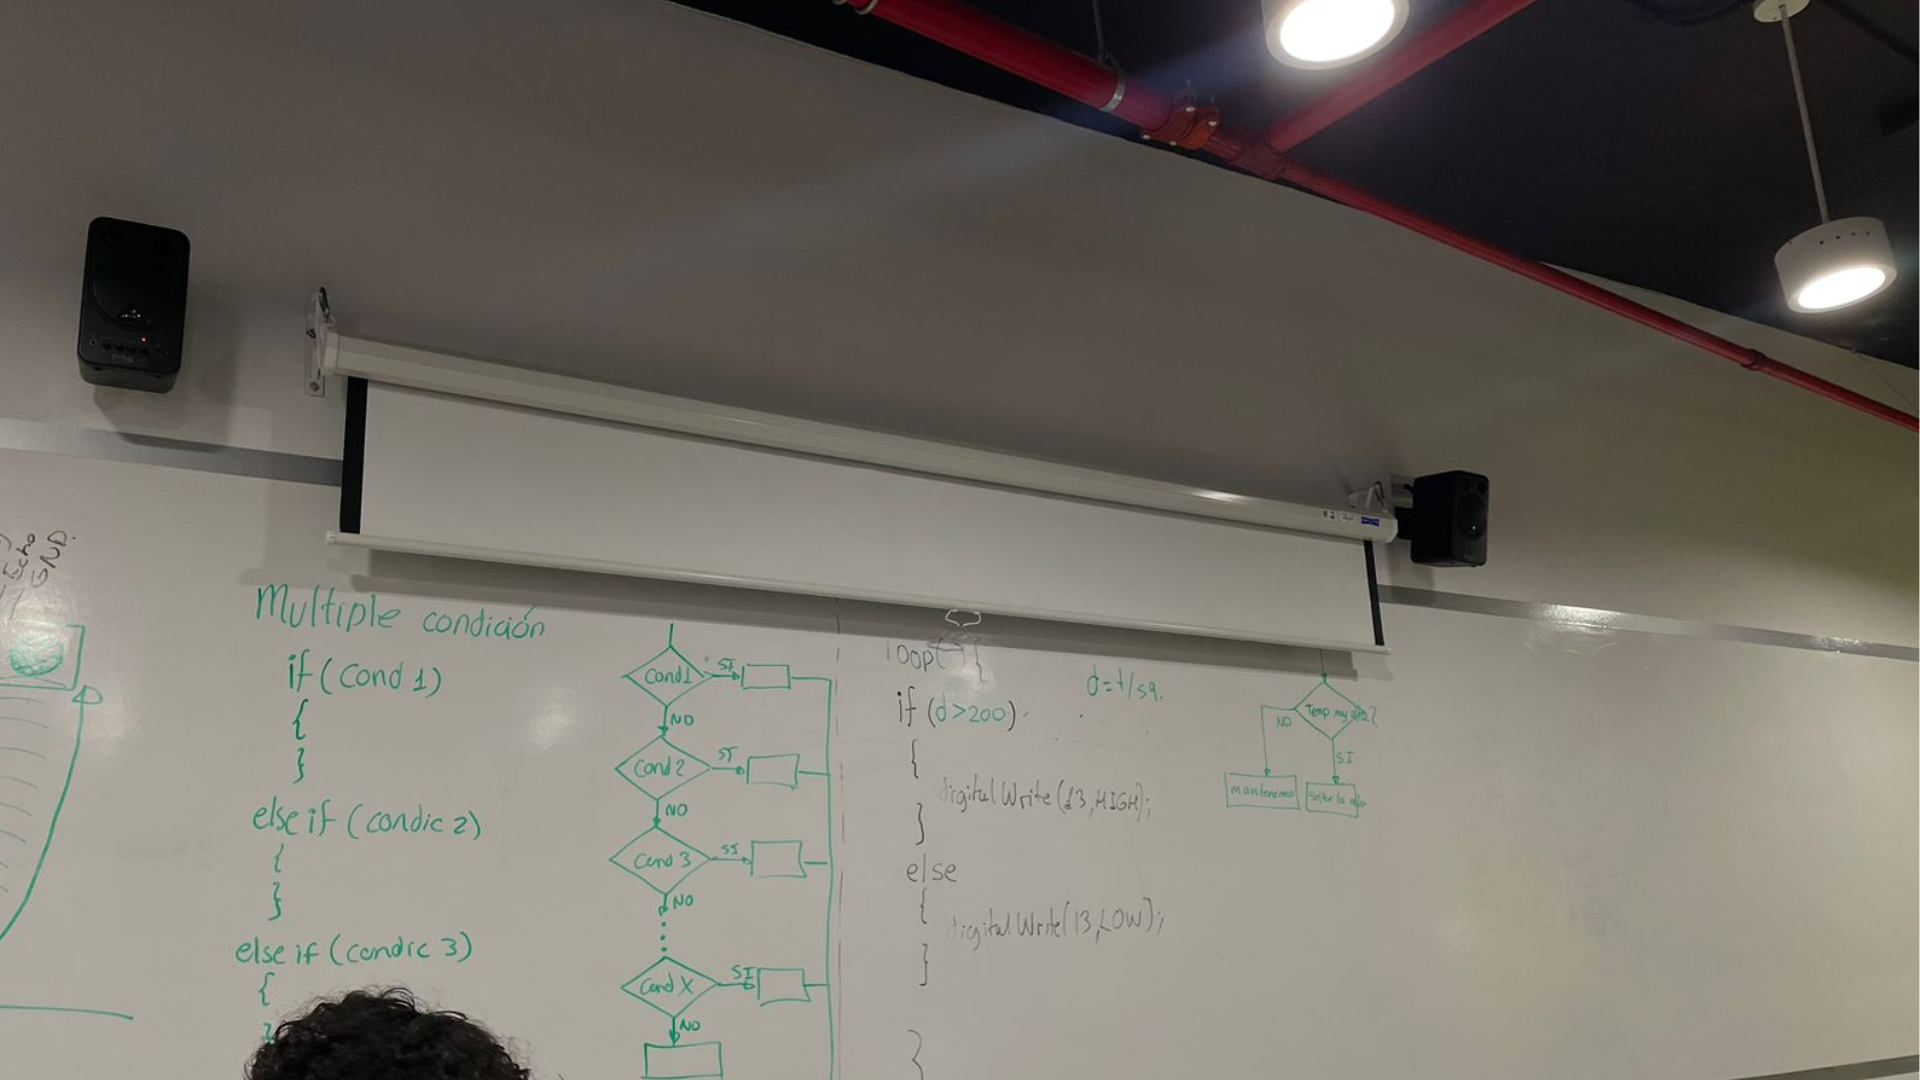 Echo
GND.
Multiple condición
if (Cond 1)
{
}
else if (condic 2)
{
}
else if (condic 3)
{
Cond1
SI
NO
Cond 2
SI
NO
Cond 3
SI
NO
Cond X
SI
NO
loop() {
if (d>200)
{
digitalWrite(13,HIGH);
}
else
{
digitalWrite(13,LOW);
}
}
d=t/59.
Temp muy alta?
NO
SI
mantenemos